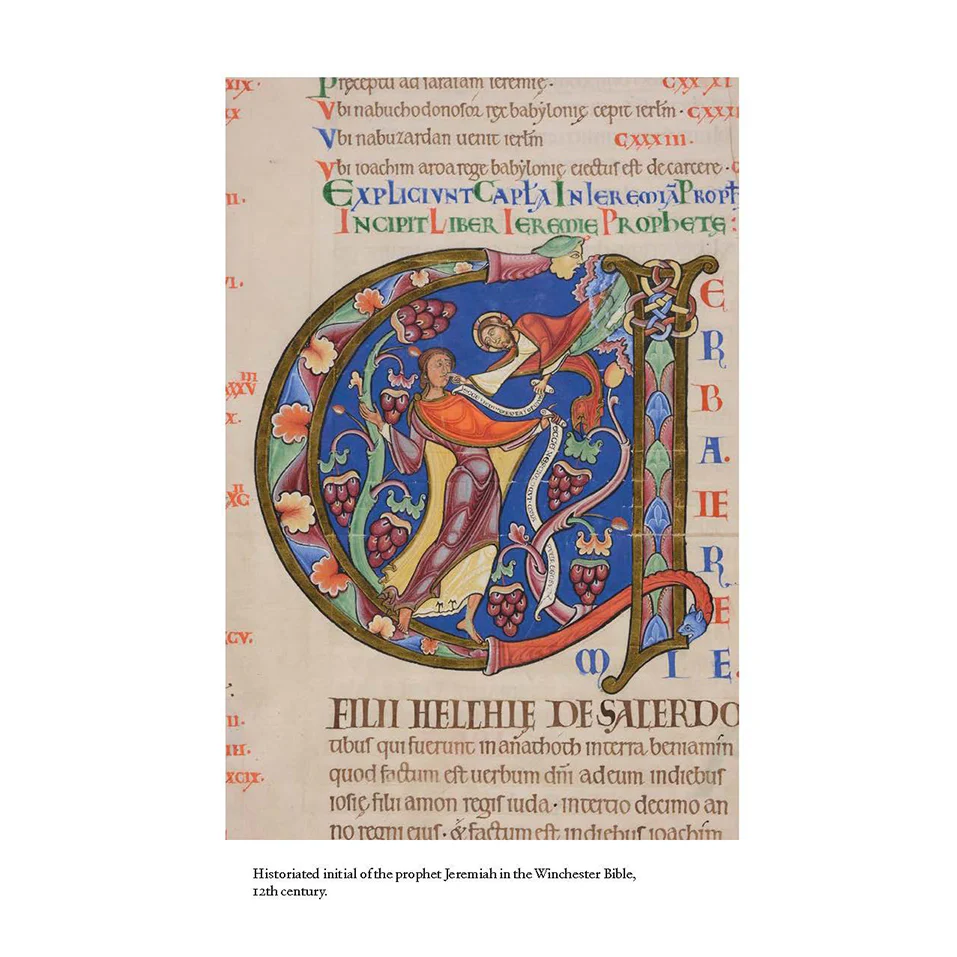 XIX.
Precepta ad saraiam ieremie. CXX XI
X
Vbi nabuchodonosor rex babylonie cepit ierlm. CXXXI
Vbi nabuzardan uenit ierlm CXXXIII.
Vbi ioachim a rege babylonie eiectus est de carcere.
EXPLICIVNT CAPLA IN IEREMIA PROPH
II.
INCIPIT LIBER IEREMIE PROPHETE:
VI.
ERBA. IEREMIE.
XXXV III
X.
XC II
FILII HELCHIE DE SACERDO
CV.
tibus qui fuerunt in anathoth in terra beniamin
II.
quod factum est uerbum dni ad eum in diebus
III.
iosie filii amon regis iuda. in tertio decimo an
XCIX.
no regni eius. & factum est in diebus ioachim
Historiated initial of the prophet Jeremiah in the Winchester Bible,
12th century.